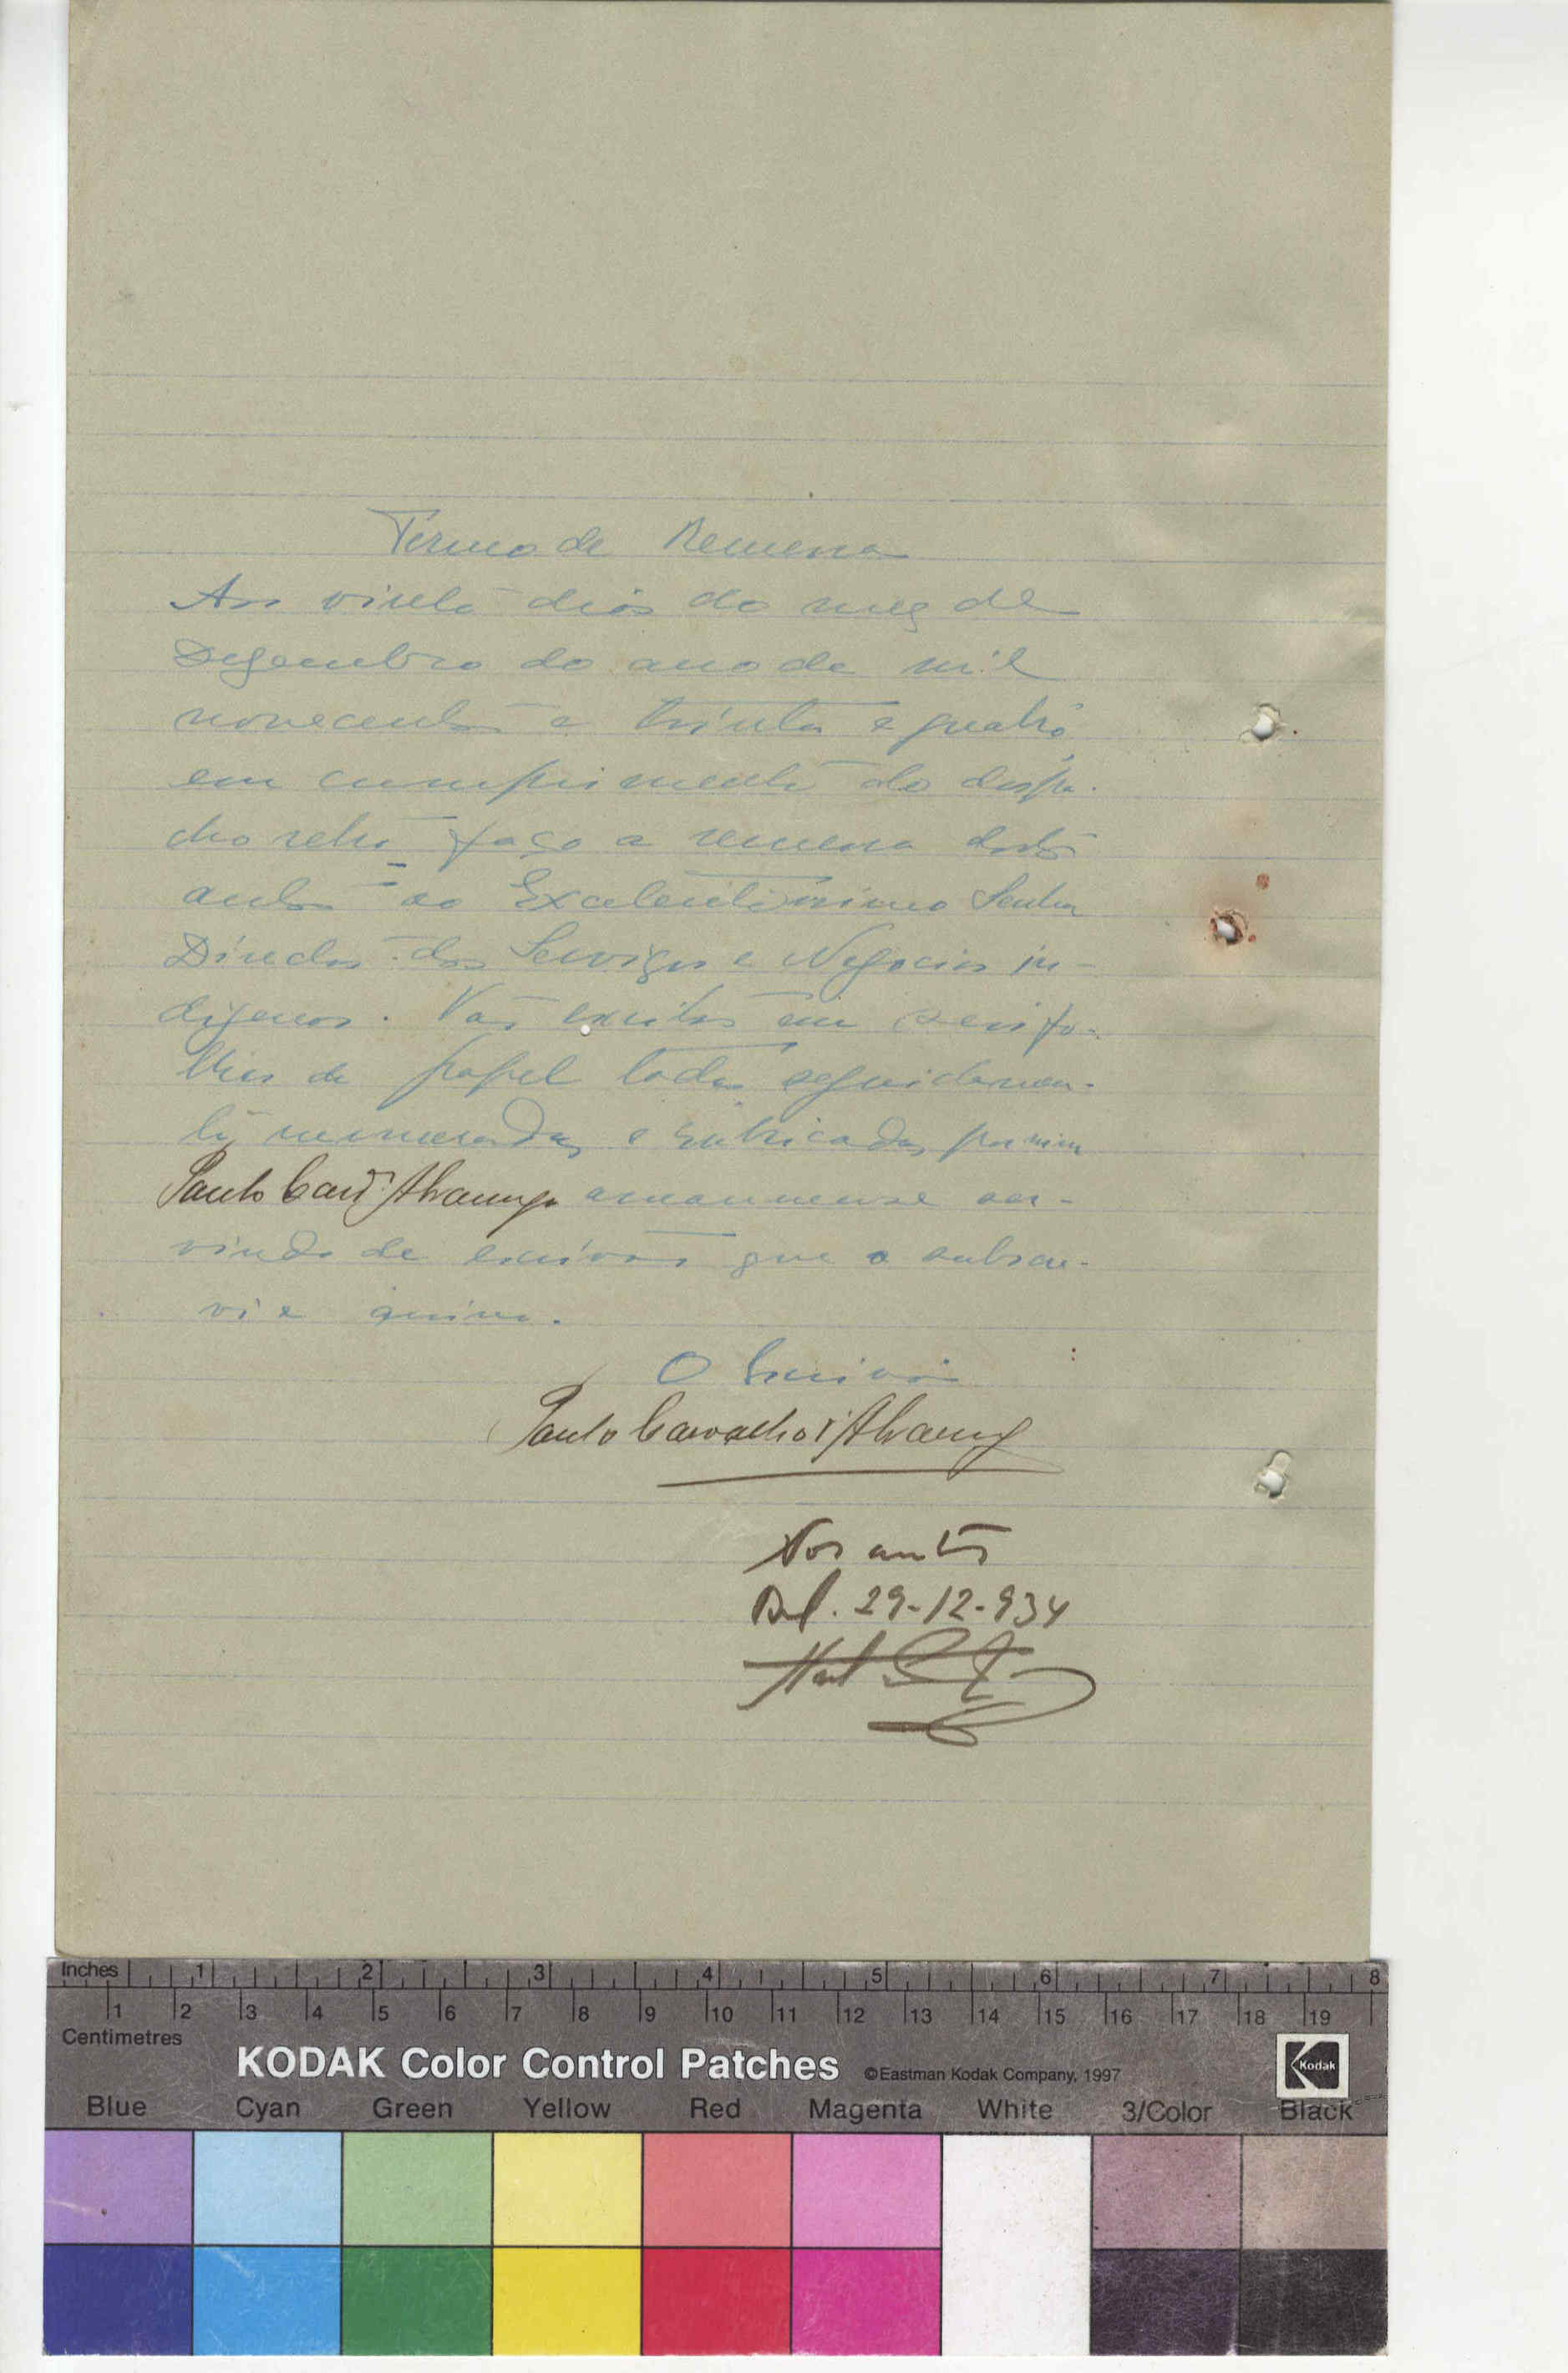 Termo de Remessa
Aos vinte dias do mez de
Dezembro do ano de mil
novecentos e trinta e quatro
em cumprimento do despa-
cho retro faço a remessa destes
autos ao Excelentissimo Senhor
Director dos Serviços e Negocios in-
digenas. Vão escritos em seis fo-
lhas de papel todas seguidamen-
te numeradas e rubricadas por mim
Paulo Carv.º d'Alvarenga amanuense ser-
vindo de escrivão que o subscre-
vi e assino.
O Escrivão
Paulo Carvalho d'Alvarenga
Nos autos
29-12-934
Inches 1 2 3 4 5 6 7 8
1 2 3 4 5 6 7 8 9 10 11 12 13 14 15 16 17 18 19
Centimetres
KODAK Color Control Patches ©Eastman Kodak Company, 1997 Kodak
Blue Cyan Green Yellow Red Magenta White 3/Color Black